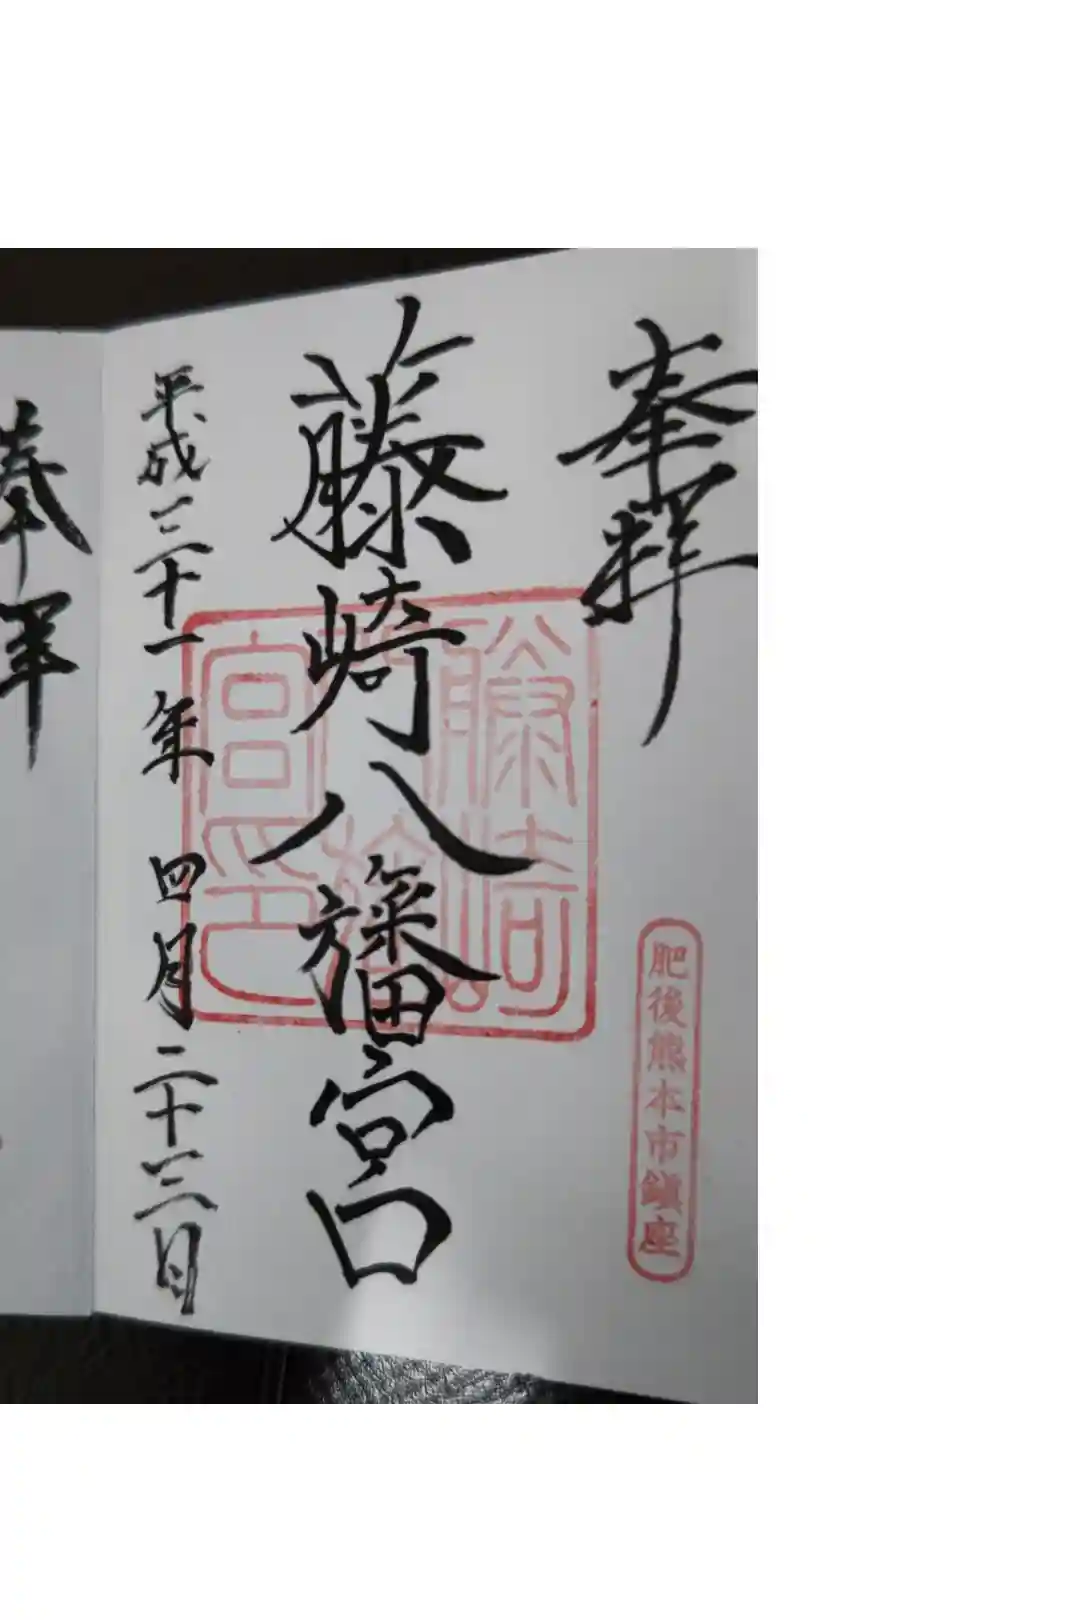 奉拝
肥後熊本市鎮座
藤崎八旛宮
藤崎
八旛
宮印
平成三十一年 四月二十三日
奉拝